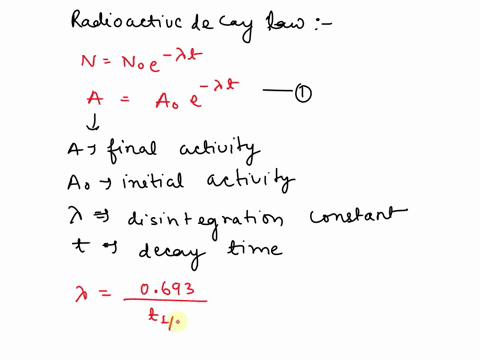 Radioactive decay law :-
N = N₀e^-λt
A = A₀ e^-λt —— ①
↓
A → final activity
A₀ → initial activity
λ ⇒ disintegration constant
t ⇒ decay time
λ = 0.693 / t₁/